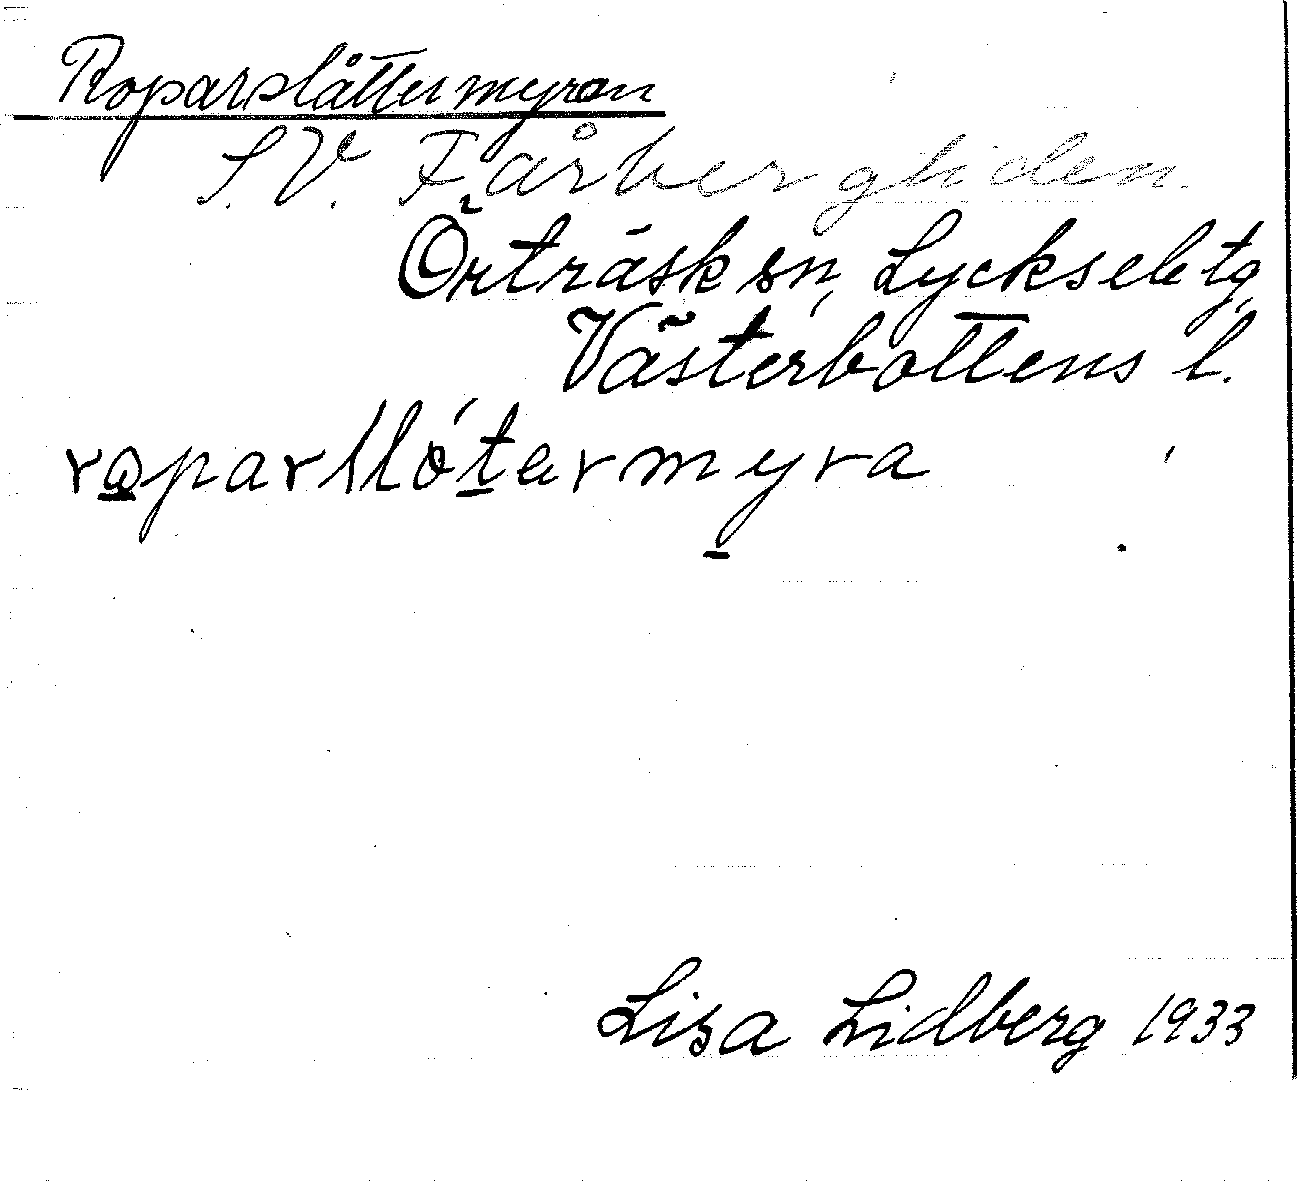 Roparslåttermyran
S.V. Fårbergliden.
Örträsk sn, Lycksele tg
Västerbottens l.
roparslótermyra
Lisa Lidberg 1933